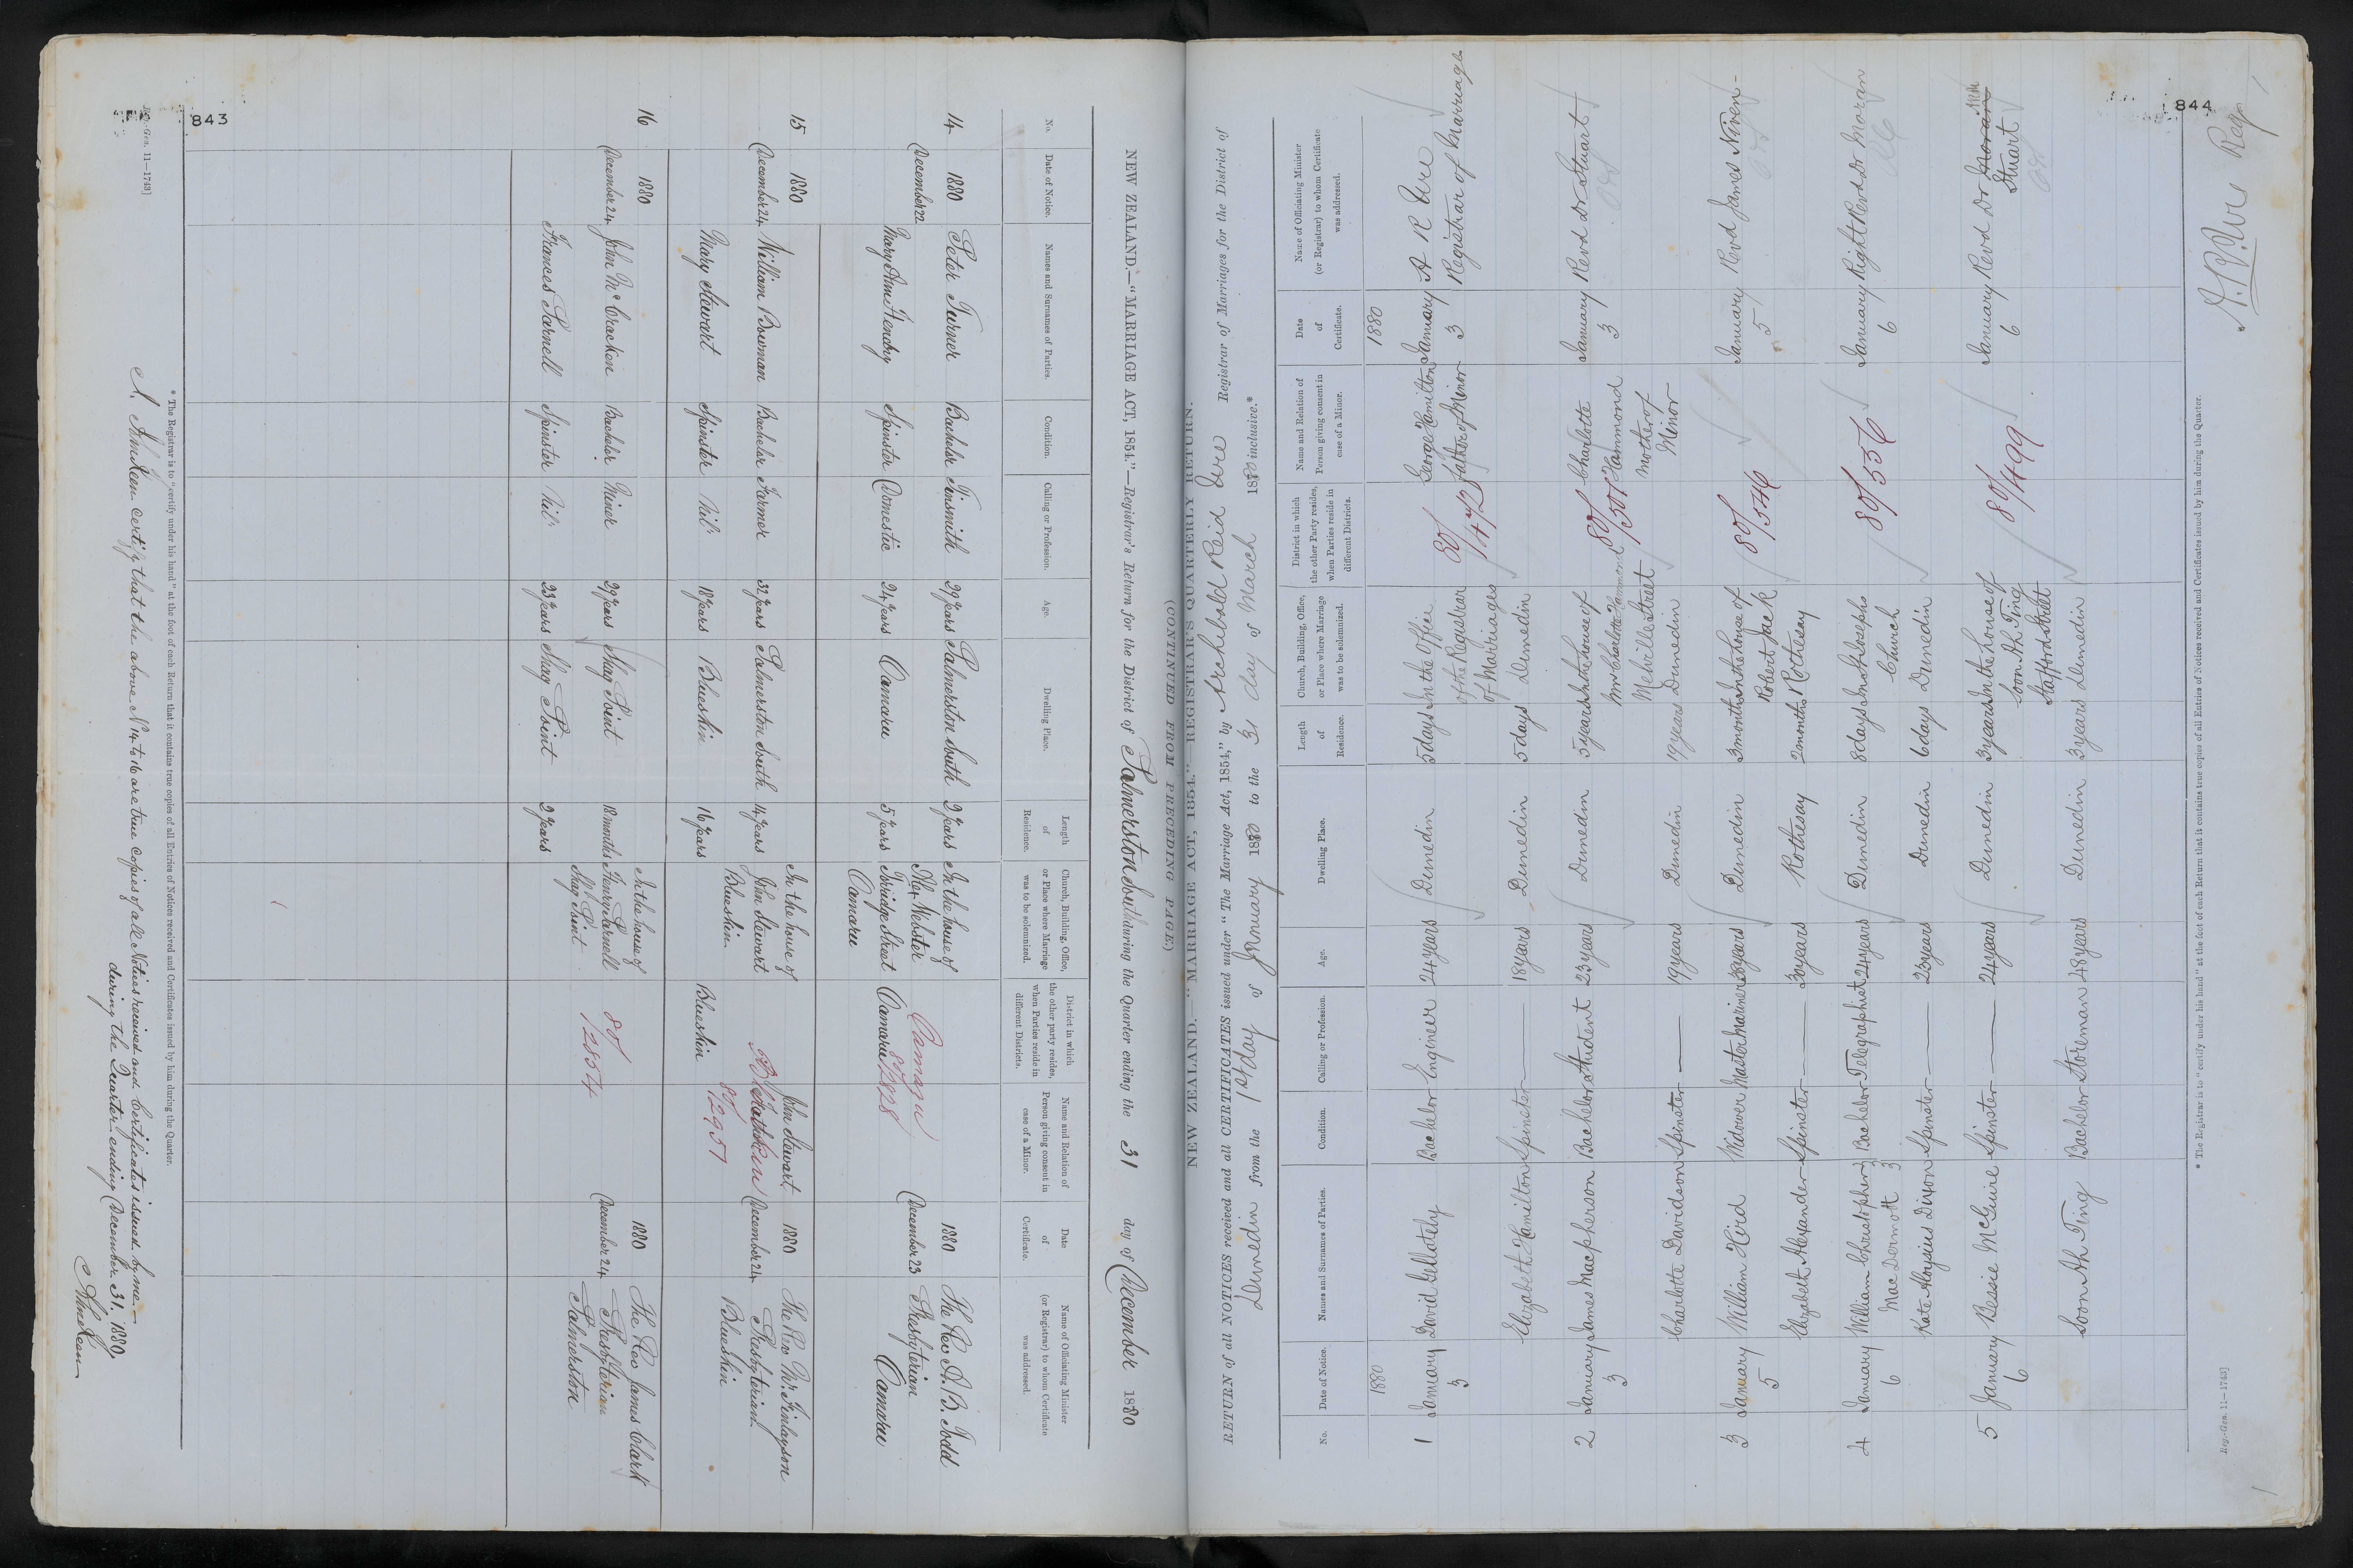 843
NEW ZEALAND.—"MARRIAGE ACT, 1854."—Registrar's Return for the District of Palmerston South during the Quarter ending the 31 day of December 1880
(CONTINUED FROM PRECEDING PAGE)
No. Date of Notice. Names and Surnames of Parties. Condition. Calling or Profession. Age. Dwelling Place. Length of Residence. Church, Building, Office, or Place where Marriage was to be solemnized. District in which the other party resides, when Parties reside in different Districts. Name and Relation of Person giving consent in case of a Minor. Date of Certificate. Name of Officiating Minister (or Registrar) to whom Certificate was addressed.
14 1880 December 22 Peter Turner Bachelor Tinsmith 29 years Palmerston South 2 years In the house of 1880 December 23 The Rev A. B. Todd
Mary Ann Spinster Domestic 24 years Oamaru 5 years Webster Street Oamaru Oamaru Presbyterian Oamaru
Oamaru 80/2828
15 1880 December 24 William Bowman Bachelor Farmer 32 years Palmerston South 14 years In the house of John Stewart Blueskin John Stewart 1880 December 24 The Rev Mr. Finlayson
Mary Stewart Spinster Nil 18 years Blueskin 16 years Blueskin Presbyterian Blueskin
80/2957
16 1880 December 24 John McCracken Bachelor Miner 29 years Shag Point 18 months In the house of Henry Parnell Shag Point 1880 December 24 The Rev James Clark
Frances Parnell Spinster Nil 23 years Shag Point 2 years Presbyterian Palmerston
80/2854
* The Registrar is to "certify under his hand" at the foot of each Return that it contains true copies of all Entries of Notices received and Certificates issued by him during the Quarter.
certify that the above No 14 to 16 are true copies of all Notices received and Certificates issued by me
during the Quarter ending December 31. 1880.
Reg.-Gen. 11—1743]
844
NEW ZEALAND.—"MARRIAGE ACT, 1854."—REGISTRAR'S QUARTERLY RETURN.
RETURN of all NOTICES received and all CERTIFICATES issued under "The Marriage Act, 1854," by Archibald Reid Ure Registrar of Marriages for the District of
Dunedin from the 1st day of January 1880 to the 31 day of March 1880 inclusive.*
No. Date of Notice. Names and Surnames of Parties. Condition. Calling or Profession. Age. Dwelling Place. Length of Residence. Church, Building, Office, or Place where Marriage was to be solemnized. District in which the other Party resides, when Parties reside in different Districts. Name and Relation of Person giving consent in case of a Minor. Date of Certificate. Name of Officiating Minister (or Registrar) to whom Certificate was addressed.
1880 1880
1 January 3 David Gellately Bachelor Engineer 24 years Dunedin 5 days In the Office of the Registrar of Marriages George Hamilton Father of Minor January 3 A R Ure Registrar of Marriages
Elizabeth Hamilton Spinster — 18 years Dunedin 5 days Dunedin
80/472
2 January 3 James Macpherson Bachelor Student 23 years Dunedin 5 years In the house of Mrs Charlotte Hammond Melville Street Charlotte Hammond Mother of Minor January 3 Revd Dr Stuart
Charlotte Davidson Spinster — 19 years Dunedin 19 years Dunedin
80/501
3 January 5 William Hird Widower Master Mariner 38 years Dunedin 3 months In the house of Robert Jack January 5 Revd James Niven
Elizabeth Alexander Spinster — 30 years Rothesay 2 months Rothesay
80/546
4 January 6 William Christopher MacDermott Bachelor Telegraphist 24 years Dunedin 8 days In St Josephs Church January 6 Right Revd Dr Moran
Kate Aloysius Dixon Spinster — 23 years Dunedin 6 days Dunedin
80/556
5 January 6 Bessie McGuire Spinster — 24 years Dunedin 3 years In the house of Soon Ah Ting Stafford Street January 6 Revd Dr Moran Stuart
Soon Ah Ting Bachelor Storeman 48 years Dunedin 3 years Dunedin
80/499
* The Registrar is to "certify under his hand" at the foot of each Return that it contains true copies of all Entries of Notices received and Certificates issued by him during the Quarter.
A. R. Ure Reg
Reg.-Gen. 11—1743]